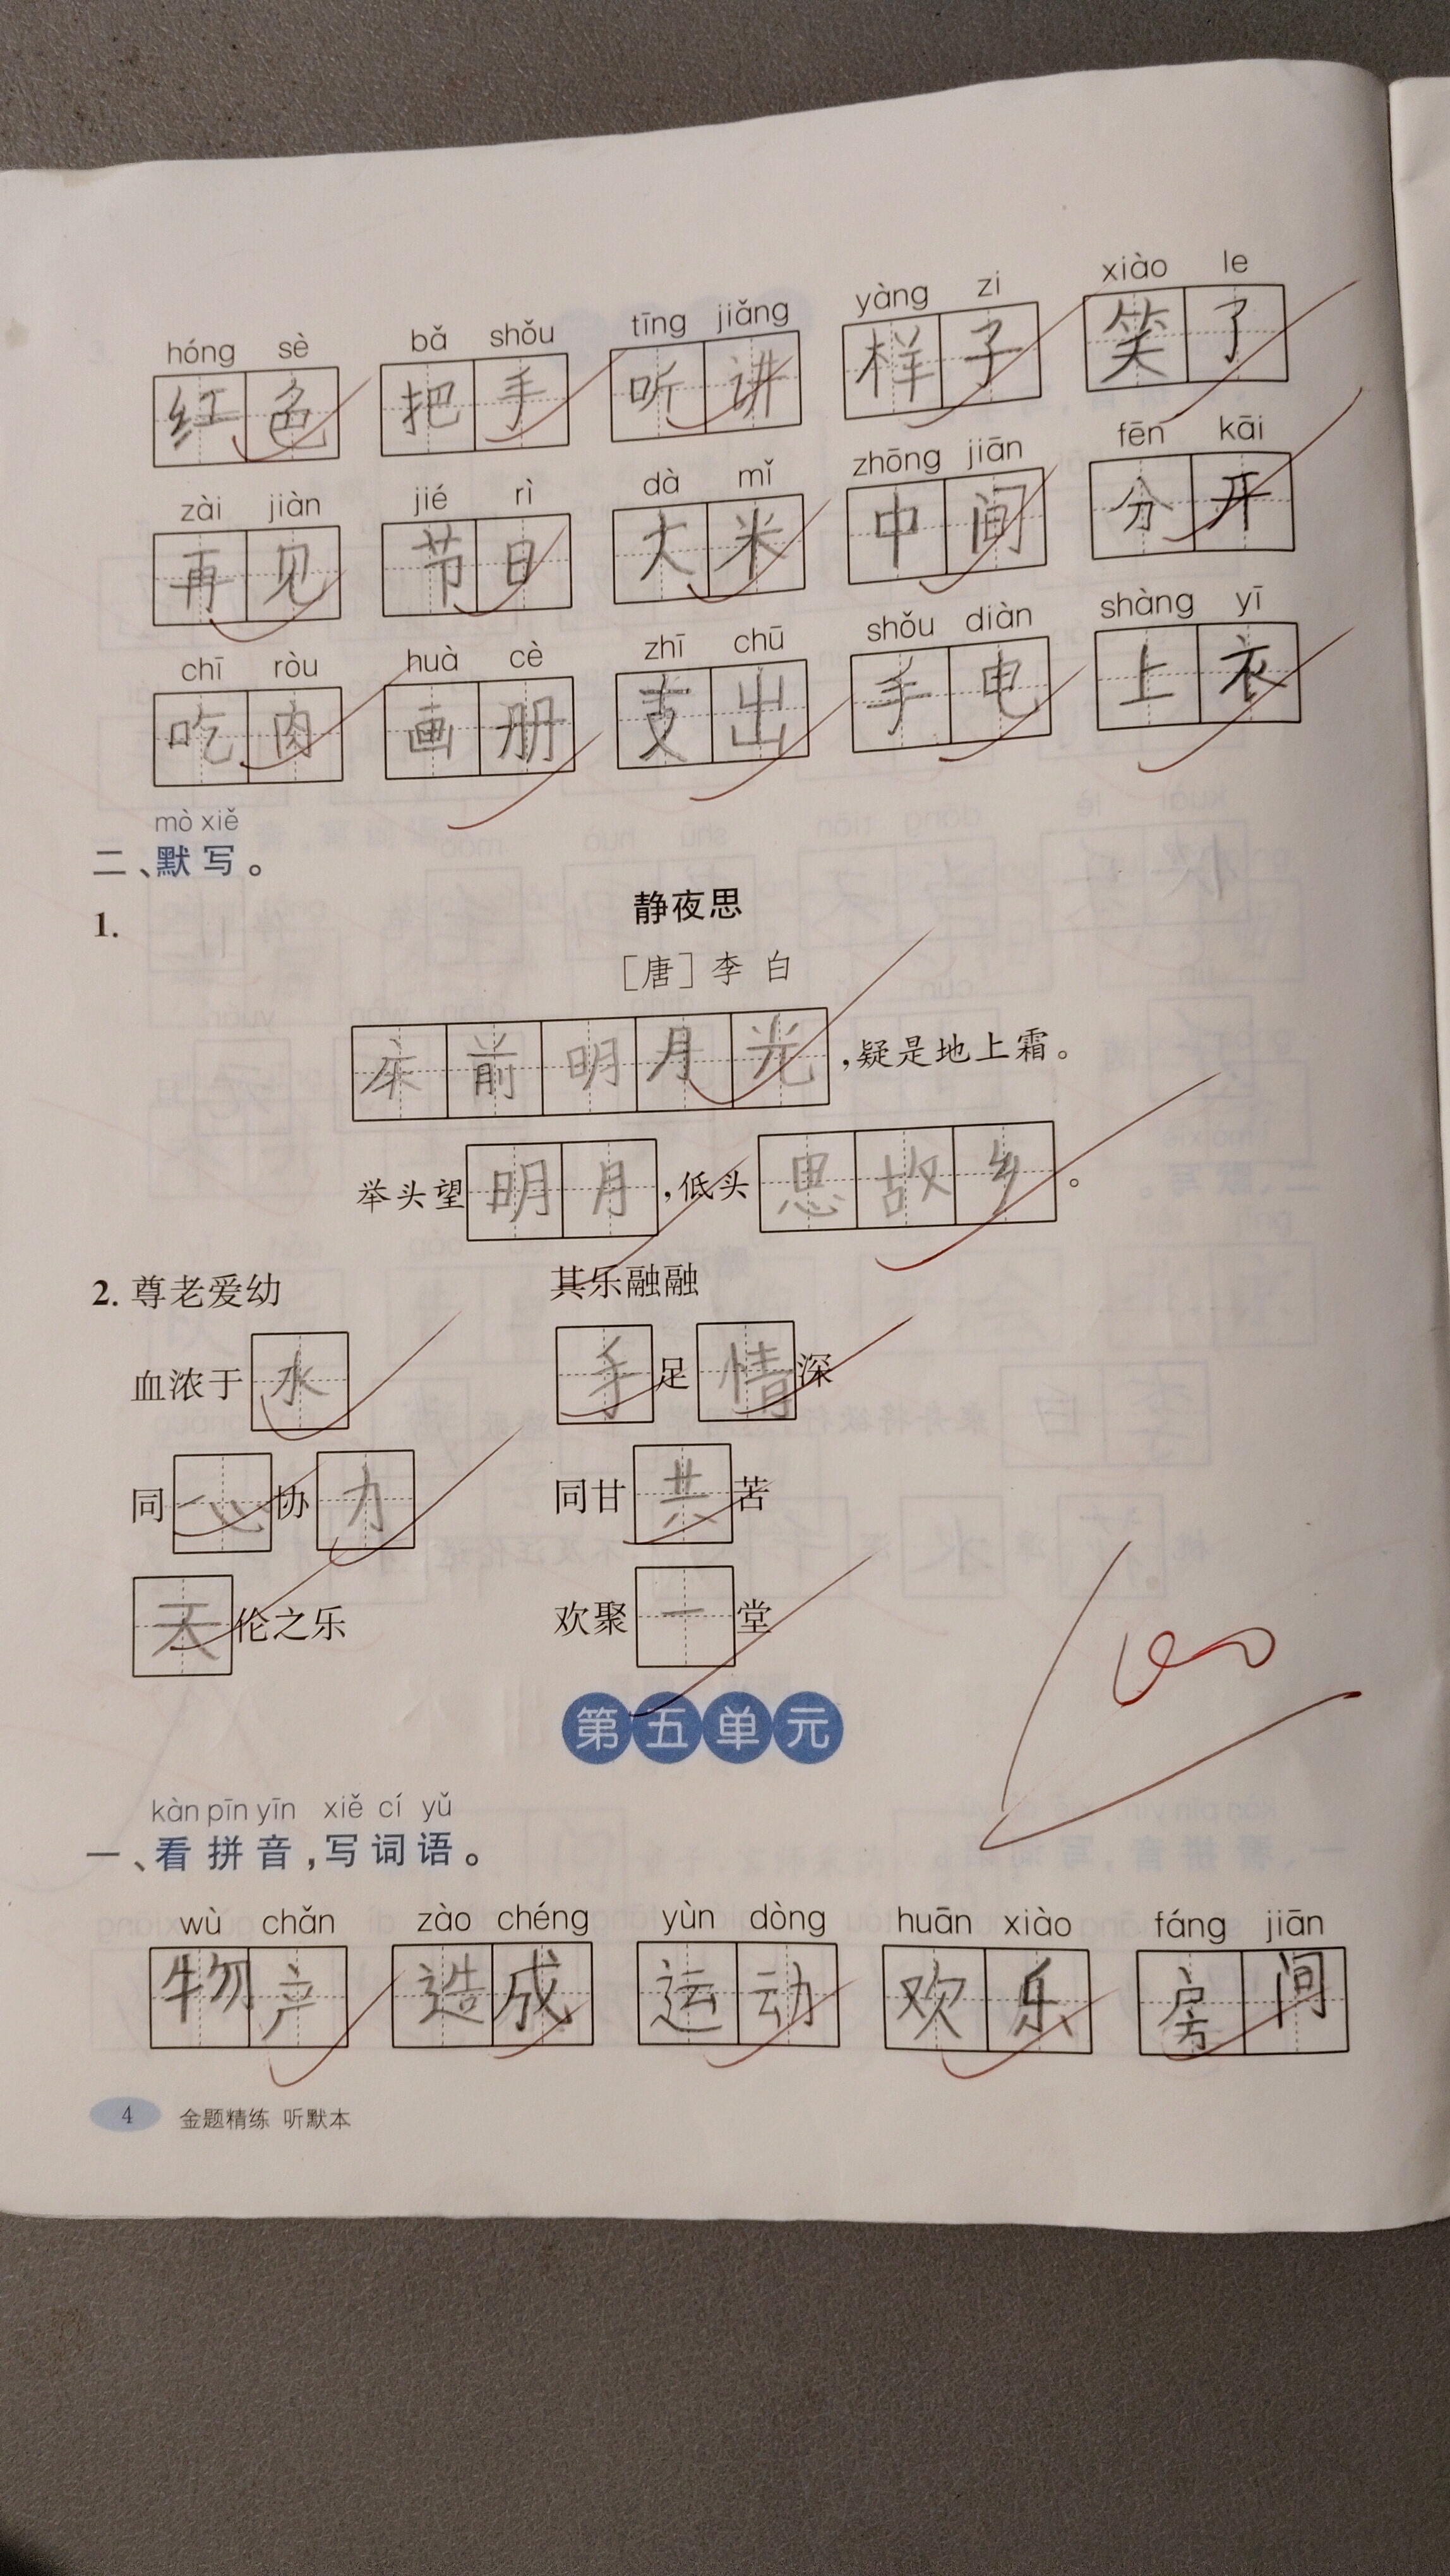 hóng sè bǎ shǒu tīng jiǎng yàng zi xiào le
红色 把手 听讲 样子 笑了
zài jiàn jié rì dà mǐ zhōng jiān fēn kāi
再见 节日 大米 中间 分开
chī ròu huà cè zhī chū shǒu diàn shàng yī
吃肉 画册 支出 手电 上衣
mò xiě
二、默写。
1.
静夜思
［唐］李 白
床前明月光,疑是地上霜。
举头望明月,低头思故乡。
2. 尊老爱幼 其乐融融
血浓于水 手足情深
同心协力 同甘共苦
天伦之乐 欢聚一堂
100
第五单元
kàn pīn yīn xiě cí yǔ
一、看拼音,写词语。
wù chǎn zào chéng yùn dòng huān xiào fáng jiān
物产 造成 运动 欢乐 房间
4 金题精练 听默本